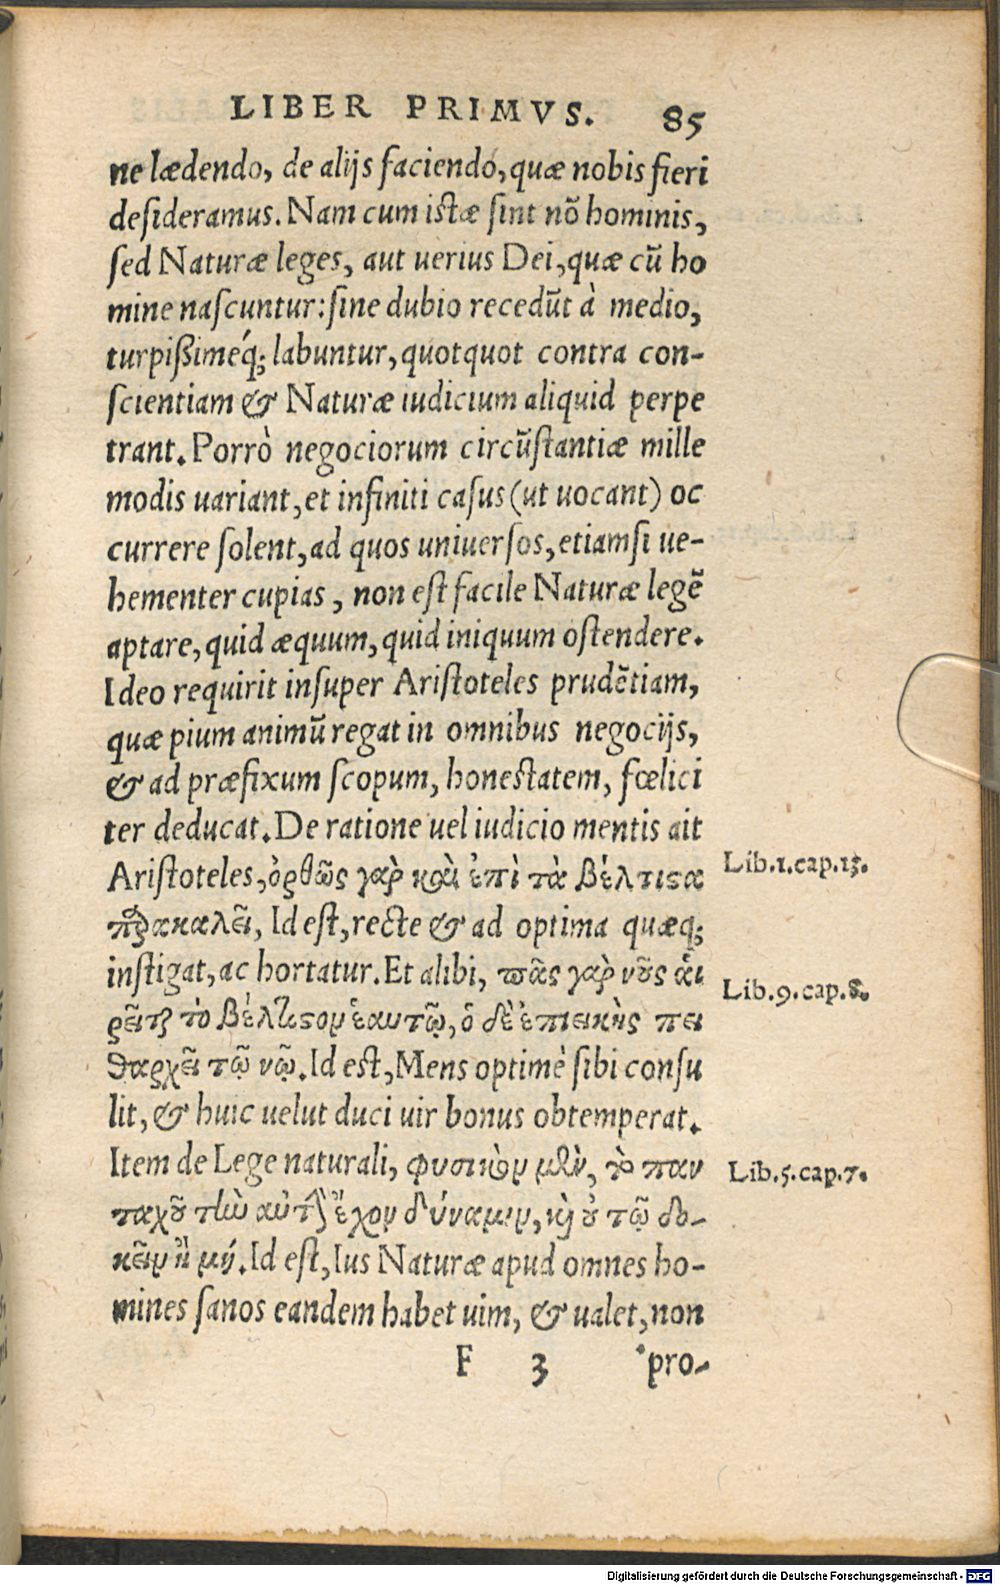 LIBER PRIMVS. 85
ne lædendo, de alijs faciendo, quæ nobis fieri
desideramus. Nam cum istæ sint nõ hominis,
sed Naturæ leges, aut uerius Dei, quæ cũ ho
mine nascuntur: sine dubio recedũt à medio,
turpißiméq; labuntur, quotquot contra con-
scientiam & Naturæ iudicium aliquid perpe
trant. Porrò negociorum circũstantiæ mille
modis uariant, et infiniti casus (ut uocant) oc
currere solent, ad quos uniuersos, etiamsi ue-
hementer cupias, non est facile Naturæ legẽ
aptare, quid æquum, quid iniquum ostendere.
Ideo requirit insuper Aristoteles prudẽtiam,
quæ pium animũ regat in omnibus negocijs,
& ad præfixum scopum, honestatem, fœlici
ter deducat. De ratione uel iudicio mentis ait
Aristoteles, ὀρθῶς γὰρ καὶ ἐπὶ τὰ βέλτιστα
Lib.1.cap.13.
παρακαλεῖ, Id est, recte & ad optima quæq;
instigat, ac hortatur. Et alibi, πᾶς γὰρ νοῦς αἱ
Lib.9.cap.8.
ρεῖται τὸ βέλτιστον ἑαυτῷ, ὁ δὲ ἐπιεικὴς πει
θαρχεῖ τῷ νῷ. Id est, Mens optimè sibi consu
lit, & huic uelut duci uir bonus obtemperat.
Item de Lege naturali, φυσικὸν μὲν, τὸ παν
Lib.5.cap.7.
ταχοῦ τὴν αὐτὴν ἔχον δύναμιν, καὶ οὐ τῷ δο-
κεῖν ἢ μή. Id est, Ius Naturæ apud omnes ho-
mines sanos eandem habet uim, & ualet, non
F 3 pro-
Digitalisierung gefördert durch die Deutsche Forschungsgemeinschaft - DFG